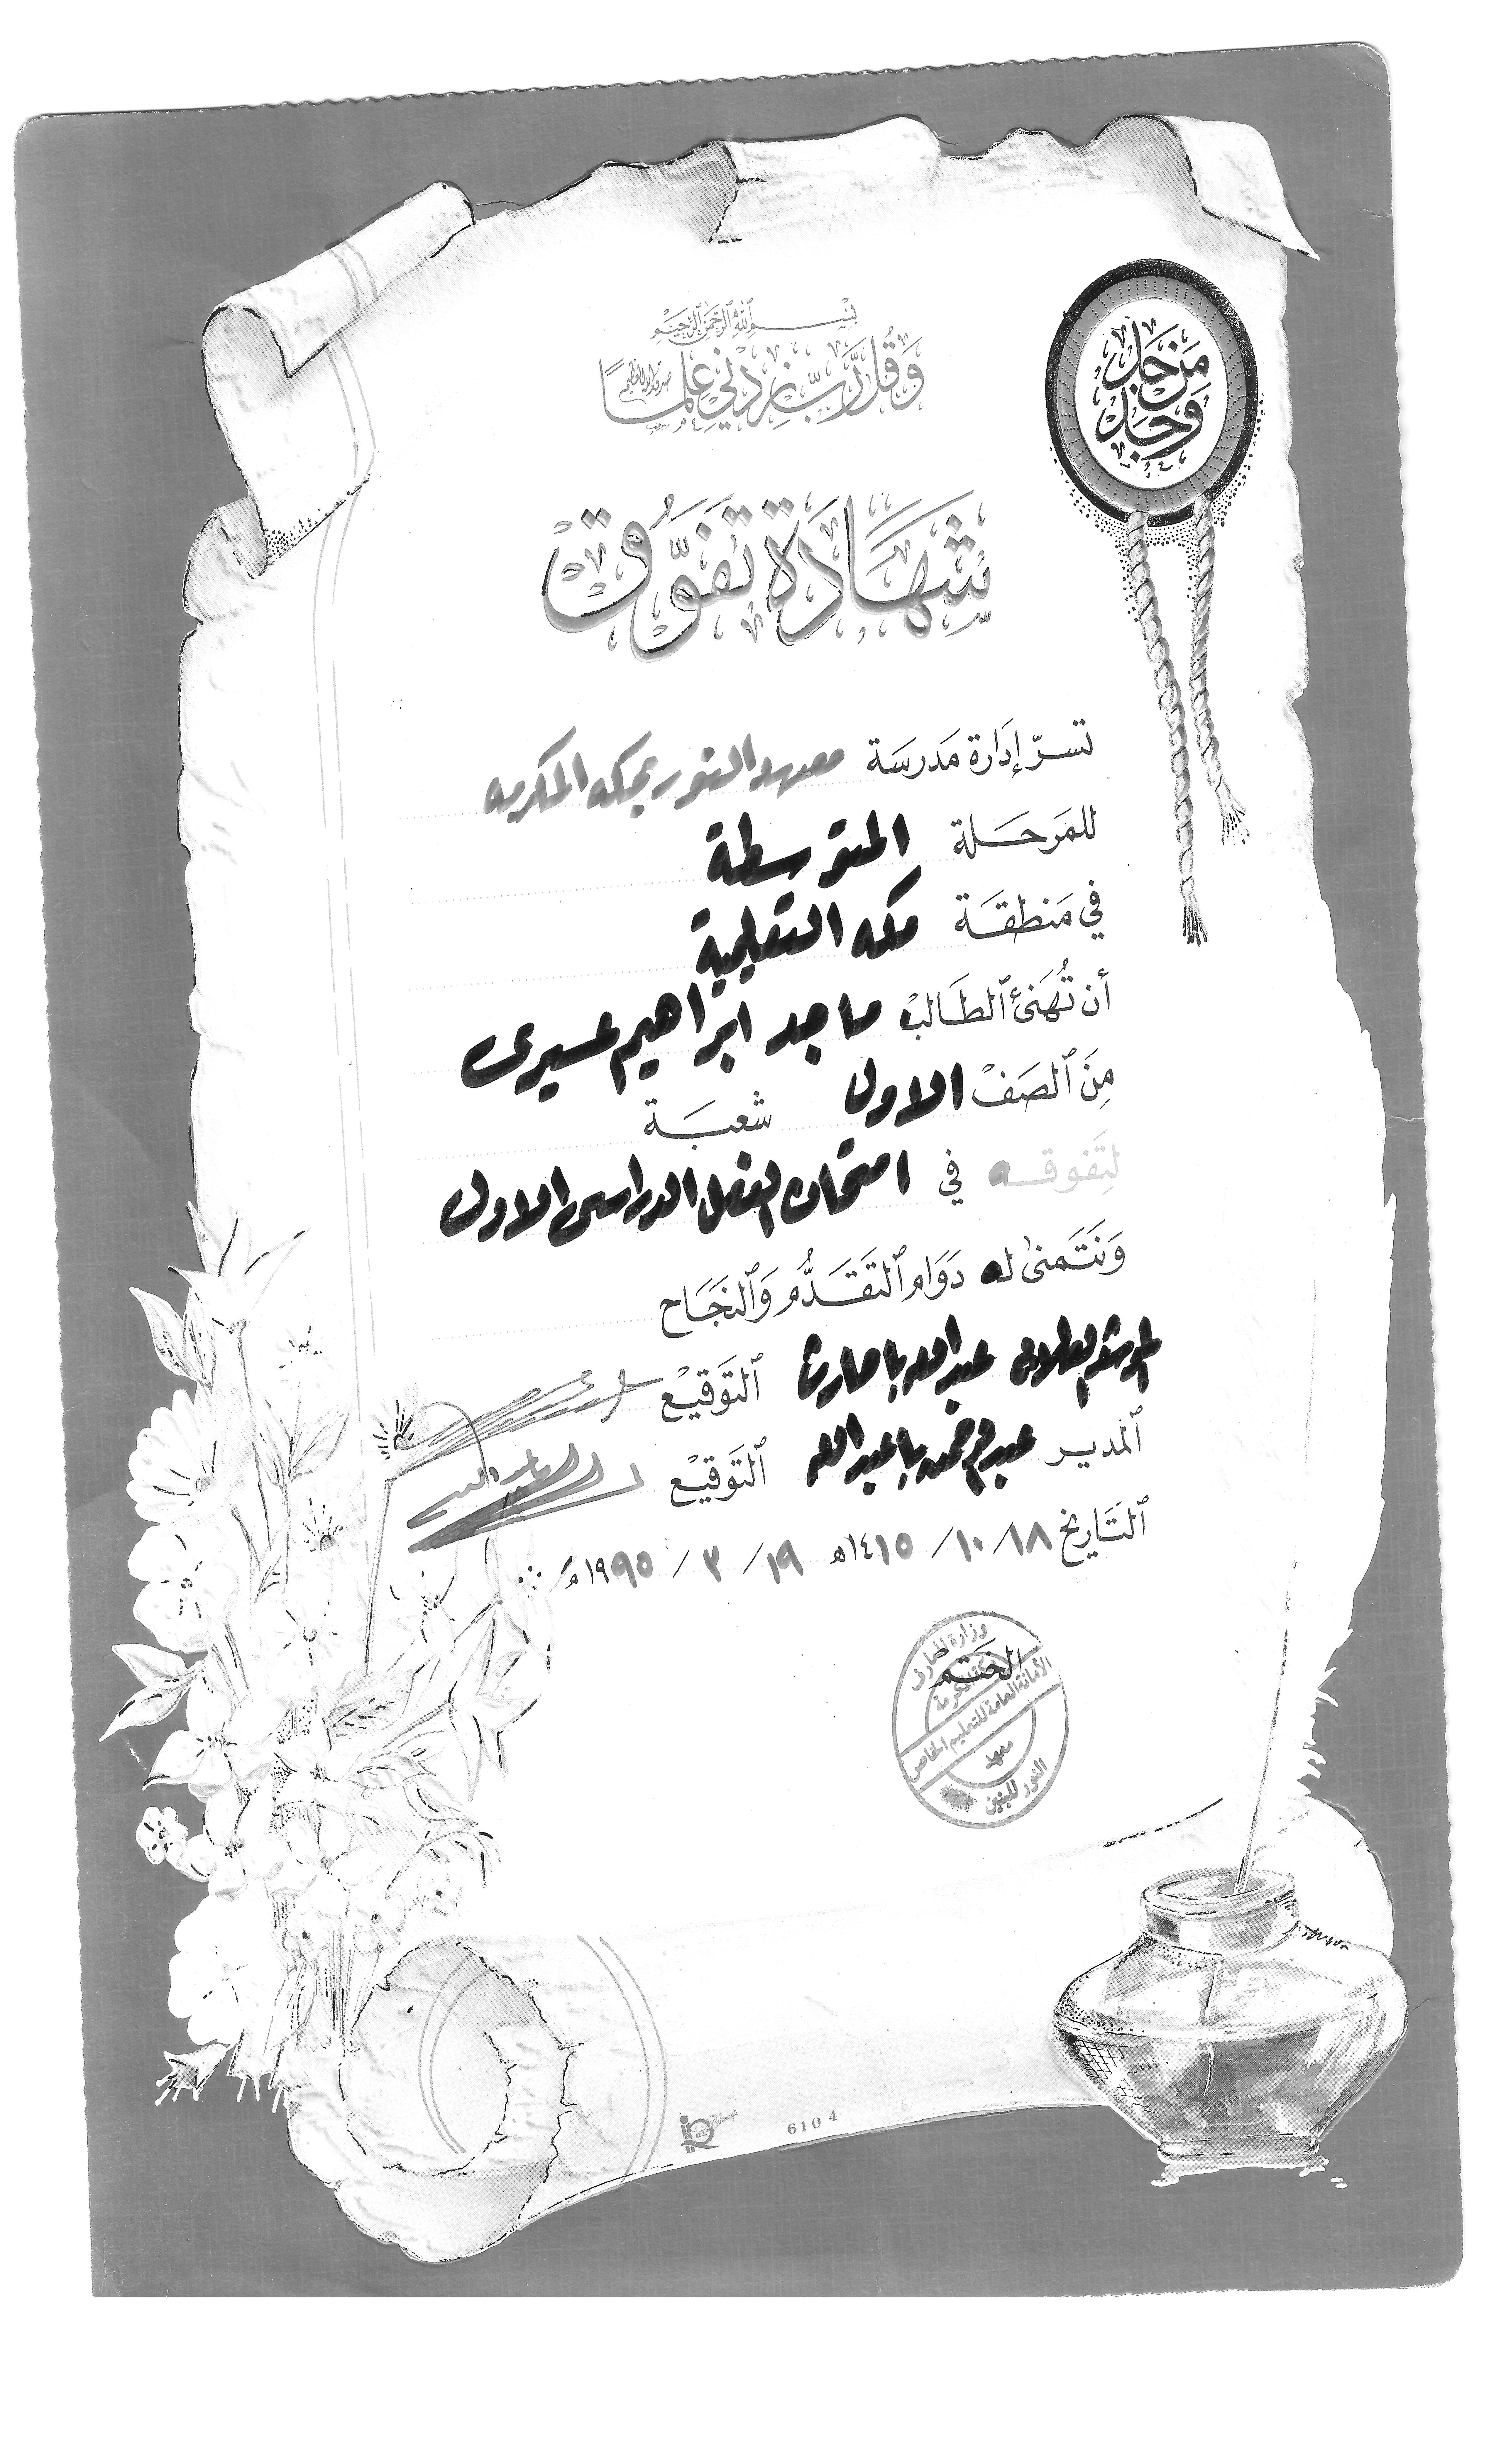 بسم الله الرحمن الرحيم
وَقُل رَّبِّ زِدْنِي عِلْمًا
صدق الله العظيم
مَن جَدَّ وَجَدَ
شَهَادَة تَفَوُّق
تسرّ إدَارة مَدرسَة معهد النور بمكه المكرمه
للمَرحَلة المتوسطة
في مَنطقَة مكه التعليمية
أن تُهَنئ ٱلطَالبْ ماجد ابراهيم عسيرى
مِنَ ٱلصَفْ الاول شعبَة
لِتَفوقه في امتحان الفصل الدراسى الاول
وَنَتَمنىٰ له دَوَام ٱلتقَدُّم وَٱلنجَاح
المرشد الطلابى عبدالله باحارث ٱلتَوقيْع
ٱلمديـر عبدالرحمن باعبدالله ٱلتَوقيْع
ٱلتَاريخ ١٨/ ١٠/ ١٤١٥هـ ١٩/ ٣/ ١٩٩٥م
الختم
وزارة المعارف
الأمانة العامة للتعليم الخاص
معهد
النور للبنين
6104